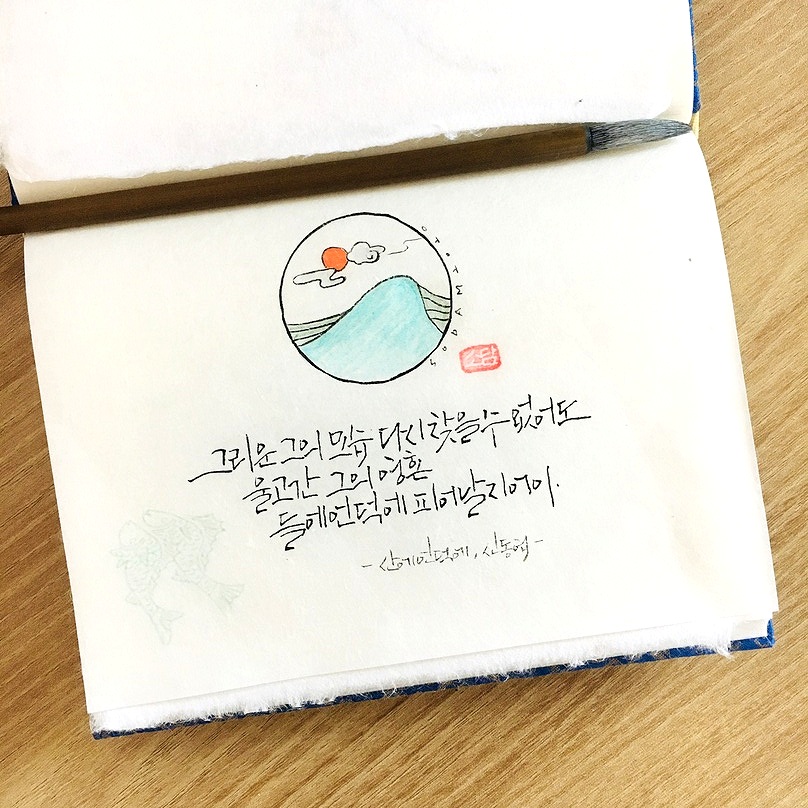 SODAM
소담
그리운 그의 모습 다시 찾을 수 없어도
울고간 그의 영혼
들에 언덕에 피어날지어이.
- 산에 언덕에, 신동엽 -